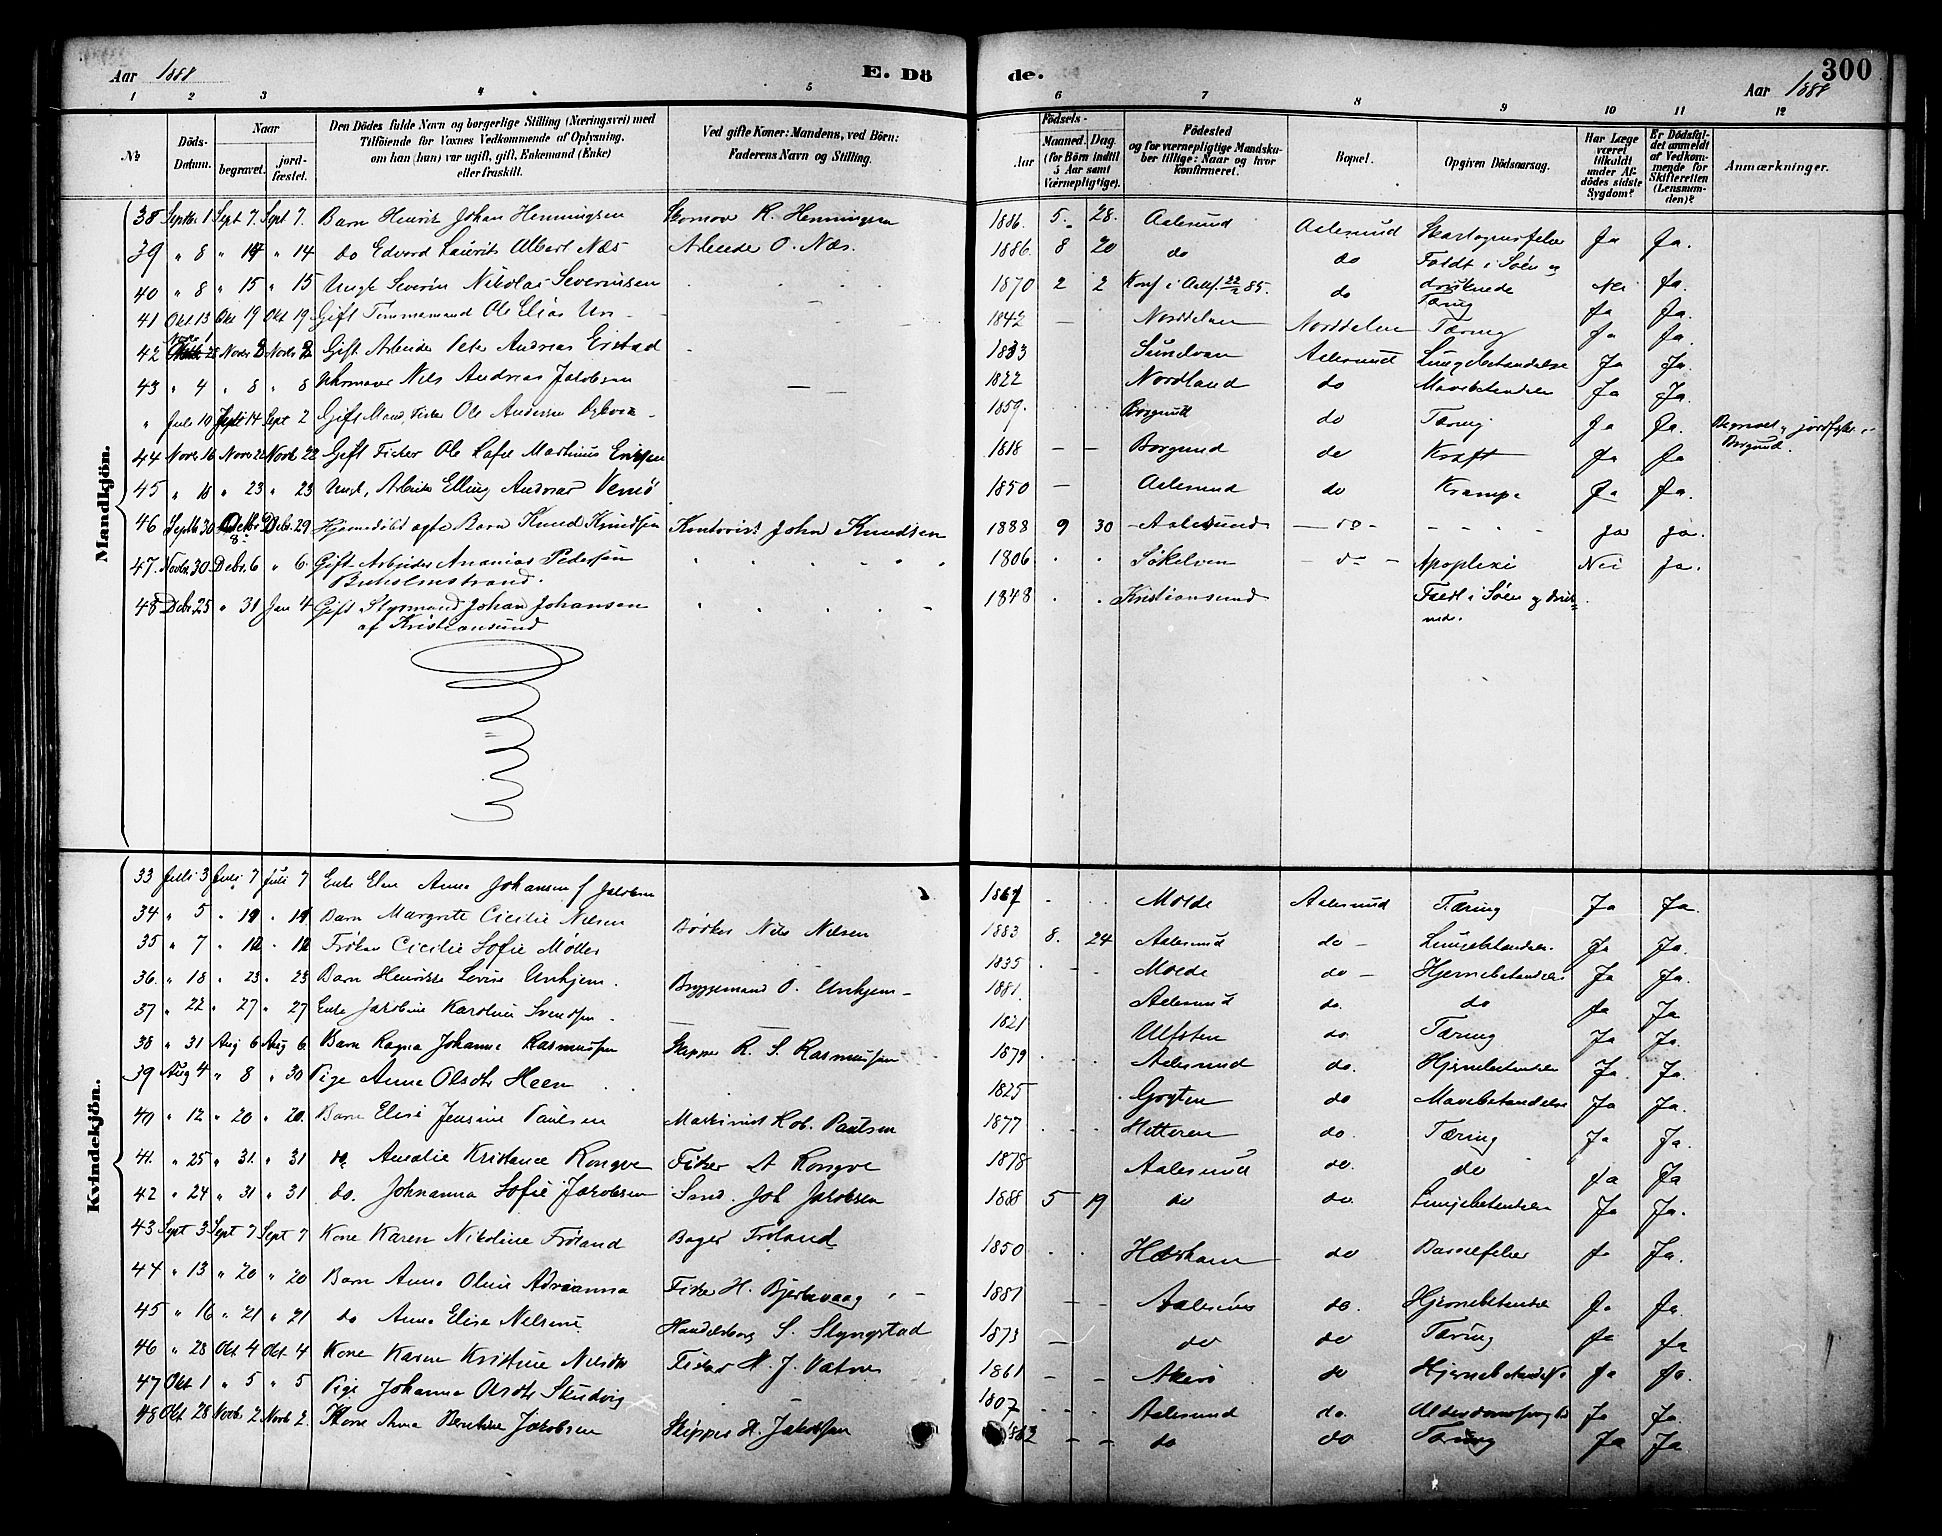 Aar 1888
E. Dö
de.
300
Aar 1888
1 2 3 4 5 6 7 8 9 10 11 12
No
Döds-Datum.
Naar
begravet.
jord-fæstet.
Den Dödes fulde Navn og borgerlige Stilling (Næringsvei) med
Tilföiende for Voxnes Vedkommende af Oplysning,
om han (hun) var ugift, gift, Enkemand (Enke)
eller fraskilt.
Ved gifte Koner: Mandens, ved Börn:
Faderens Navn og Stilling.
Födsels-
Aar
Maaned. Dag.
(for Börn indtil
5 Aar samt
Værnepligtige).
Födested
og for værnepligtige Mandsku-
ber tillige: Naar og hvor
konfirmeret.
Bopæl.
Opgiven Dödsaarsag.
Har Læge
været
tilkaldt
under Af-
dödes sidste
Sygdom?
Er Dödsfal-
det anmeldt
af Vedkom-
mende for
Skifteretten
(Lensman-
den)?
Anmærkninger.
Mandkjön.
38 Septbr 1 Sept 7. Sept 7. Barn Henrik Johan Henningsen R. Henningsen 1886. 5. 28. Aalesund Aalesund Ja Ja.
39 " 8 " 14 " 14 do Edvard Laurits Albert Næs Arbeider O. Næs. 1886. 8 20 do do Ja Ja.
40 " 8 " 15 " 15 Ungk Severin Nikolai Severinsen 1870 2 2 Konf i 85. do Faldt i Söen og druknede Nei Ja.
41 Okt 13 Okt 19 Okt 19 Gift Tømmermand Ole Elias 1842 — Norddalen Norddalen Tæring Ja Ja.
42 Novbr 1 Novbr 8 Novbr 8 Gift Arbeider Peter Andreas Erstad 1833 Sundalen Aalesund Lungebetændelse Ja Ja.
43 " 4 " 8 " 8 Nils Andreas Jacobsen — 1822 Nordland do Mavebetændelse Ja Ja.
" Juli 10 Juli 14 Sept 2 Gift Mand, Fisker Ole Andersen 1859. Borgund do Tæring Ja Ja. Begravet og jordfæstet i Borgund.
44 Novr. 16 Novr. 22 Novbr 22 Gift Fisker Ole Martinus 1818 — — Borgund do Kræft Ja Ja
45 " 16 " 23 " 23 Ungk, Arbeider Elling Andreas 1850 — Aalesund do Krampe Ja Ja.
46 Septb 30 Octbr 8 Debr. 29 Hjemmedöbt ægte Barn Knud Knudsen Kontorist John Knudsen 1888 9 30 Aalesund do Ja Ja.
47. Novbr. 30 Debr. 6 " 6. Gift Arbeider Ananias Pedersen
Buholmstrand. 1806 Sökelven do Apoplexi Nei Ja.
48 Debr. 25 " 31 Jan 4 Gift Styrmand Johan Johansen
af Kristiansund 1848 Kristiansund Faldt i Söen og druknede.
Kvindekjön.
33 Juli 3 Juli 7 Juli 7 Enke Elen Anna Johansen f Jakobsen 1867 Molde Aalesund Tæring Ja Ja.
34 " 5 " 11 " 11 Barn Margrete Cicilie Nilsen Bødker Nils Nilsen 1883 8. 24 Aalesund do Lungebetændelse. Ja Ja.
35 " 7 " 12 " 12 Frøken Cicilie Sofie Møller 1835 Molde do Hjernebetændelse Ja Ja.
36. " 18 " 23 " 23 Barn Henrikke Lovise Unhjem. Bryggemand O. Unhjem 1881. Aalesund do. do Ja Ja
37 " 22 " 27 " 27 Enke Jacobine Karoline Svendsen — 1821 Ulfsten do Tæring Ja Ja.
38 " 31 Aug 6 Aug 6. Barn Ragna Johanne Rasmussen Skipper R. S. Rasmussen 1879 Aalesund do. Hjernebetændelse Ja Ja.
39 Aug 4 " 8 " 30 Pige Anne Olsdtr Heen 1825 Grytten do Mavebetændelse Ja Ja.
40 " 12 " 20 " 20. Barn Elise Jensine Paulsen Maskinist Rob. Paulsen 1877 Hitteren do. Tæring Ja Ja.
41. " 25 " 31. " 31 do Amalie Kristance Rongve Fisker A Rongve 1878 Aalesund do. do Ja Ja
42 " 24 " 31 " 31 do. Johanna Sofie Jakobsen Joh Jacobsen 1888 5 19 do do. Lungebetændelse Ja Ja.
43 Sept 3 Sept 7 Sept 7 Kone Karen Nikoline Frøland Bager Frøland 1850 do Barselfeber Ja Ja.
44 " 13 " 20 " 20 Barn Anna Oline Adrianna Fisker H. Bjerkevaag 1881 Aalesund do. Hjernebetændelse Ja Ja.
45 " 16 " 21 " 21 do Anna Elise Nilsine Handelsborg S. Slyngstad 1873 do do Tæring Ja Ja
46 " 28 Okt 4 Okt 4 Kone Karen Kristine Nilsdtr Fisker H. J. Vatne 1861 Akerö do Hjernebetændelse Ja Ja.
47 Okt 1 " 5 " 5 Pige Johanna Olsdtr — 1807 Aalesund do. Ja Ja.
48 Okt 28 Novbr 2 Novb 2. Kone Anna Berntine Jacobsen Skipper H. Jakobsen do do Tæring Ja Ja